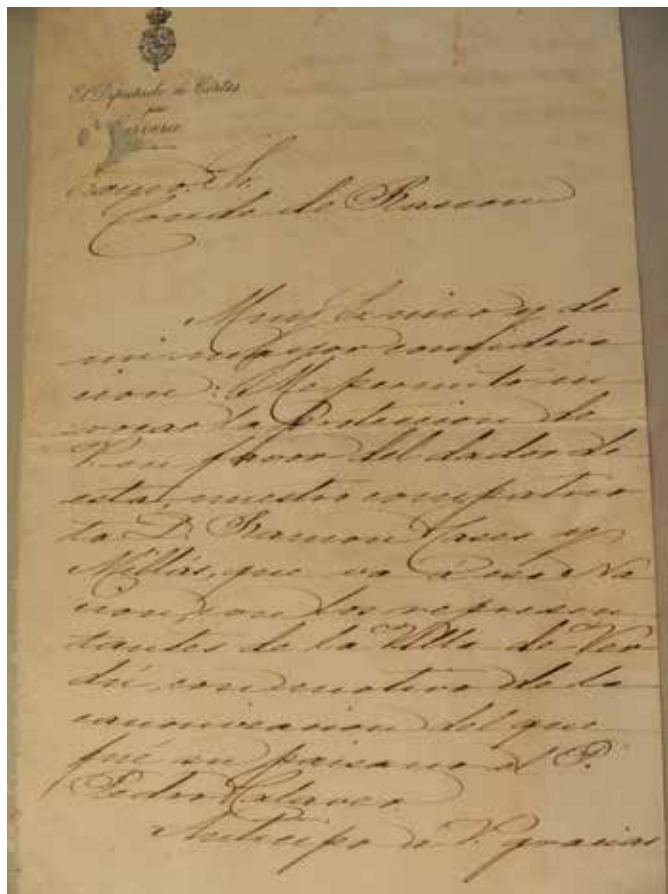 El Diputado à Cortes
por
Cervera
Excmo. Sr.
Conde de
Muy Sr. mio y de
mi mayor considera
cion: Me permito in
vocar la proteccion de
V. en favor del dador de
esta, nuestro compatrio
ta D. Ramon Cases y
Millás, que va á esa Na
cion, con los represen
tantes de la Villa de Ver
dú, con motivo de la
canonizacion del que
fué su paisano el P.
Pedro Claver.
Anticipo á V. gracias